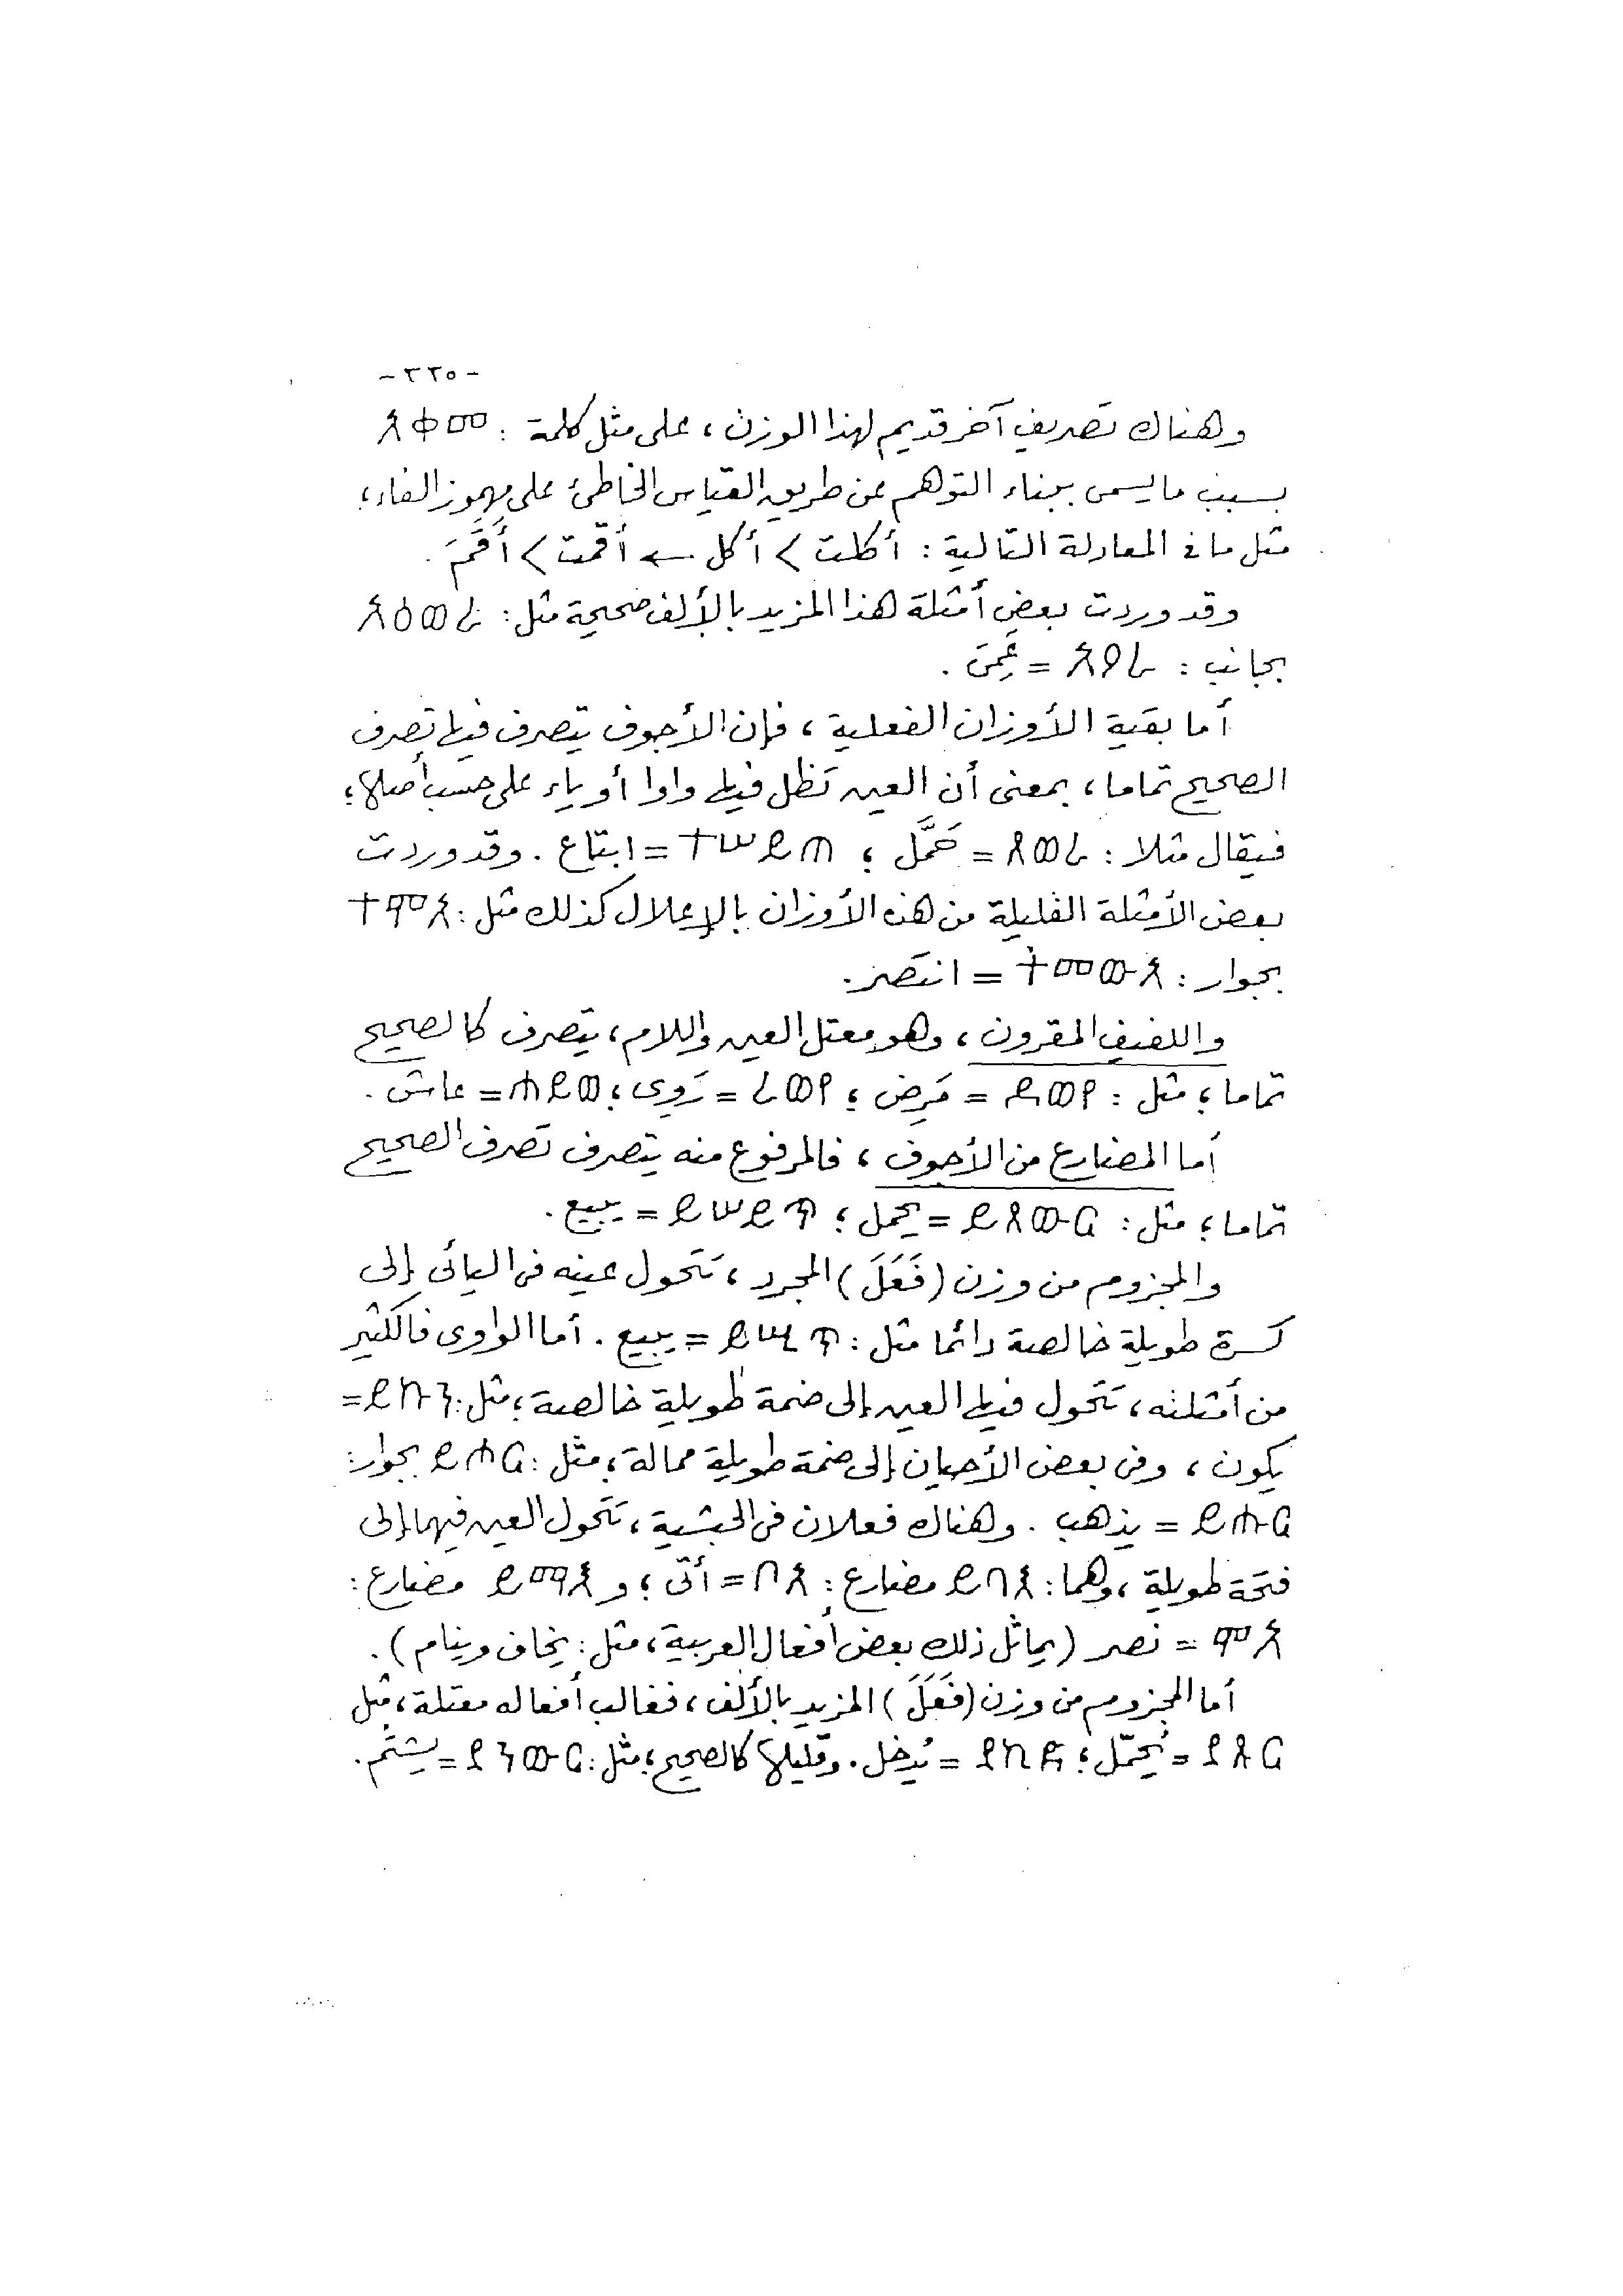 - ٢٢٥ -
وهناك تصريف آخر قديم لهذا الوزن ، على مثل كلمة : አቀመ
بسبب ما يسمى ببناء التوهم عن طريق القياس الخاطئ على مهموز الفاء ؛
مثل ما فى المعادلة التالية : أكلت > أكل ← أقمت > أَقَمَ .
وقد وردت بعض أمثلة هذا المزيد بالألف صحيحة مثل :
بجانب : = عَمِىَ .
أما بقية الأوزان الفعلية ، فإن الأجوف يتصرف فيها تصرف
الصحيح تماما ، بمعنى أن العين تظل فيها واوا أو ياء على حسب أصلها ؛
فيقال مثلا : = حَمَّل ؛ ተሠየጠ = ابتاع . وقد وردت
بعض الأمثلة القليلة من هذه الأوزان بالإعلال كذلك مثل : ተሞአ
بجوار : ተመውአ = انتصر .
واللفيف المقرون ، وهو معتل العين واللام ، يتصرف كالصحيح
تماما ؛ مثل : ደወየ = مَرِض ؛ ረወየ = رَوِى ؛ ሐየወ = عاش .
أما المضارع من الأجوف ، فالمرفوع منه يتصرف تصرف الصحيح
تماما ؛ مثل : = يحمل ؛ ይሠይጥ = يبيع .
والمجزوم من وزن (فَعَلَ) المجرد ، تتحول عينه فى اليائى إلى
كسرة طويلة خالصة دائما مثل : ይሢጥ = يبيع . أما الواوى فالكثير
من أمثلته ، تتحول فيها العين إلى ضمة طويلة خالصة ؛ مثل : ይኩን =
يكون ، وفى بعض الأحيان إلى ضمة طويلة ممالة ؛ مثل : ይሖር بجوار :
ይሑር = يذهب . وهناك فعلان فى الحبشية ، تتحول العين فيهما إلى
فتحة طويلة ، وهما : ይባእ مضارع : ቦአ = أتى ؛ و ይማእ مضارع :
ሞአ = نصر (يماثل ذلك بعض أفعال العربية ، مثل : يخاف وينام ) .
أما المجزوم من وزن (فَعَلَ) المزيد بالألف ، فغالب أفعاله معتلة ، مثل
= يُحمّل ؛ ያብእ = يُدخل . وقليلها كالصحيح ؛ مثل : ያነውር = يشتم .